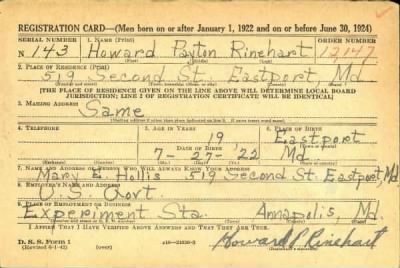 REGISTRATION CARD—(Men born on or after January 1, 1922 and on or before June 30, 1924)
SERIAL NUMBER 1. NAME (Print) ORDER NUMBER
N 143 Howard Payton Rinehart 12,147
(First) (Middle) (Last)
2. PLACE OF RESIDENCE (Print)
519 Second St. Eastport, Md.
[THE PLACE OF RESIDENCE GIVEN ON THE LINE ABOVE WILL DETERMINE LOCAL BOARD
JURISDICTION; LINE 2 OF REGISTRATION CERTIFICATE WILL BE IDENTICAL]
3. MAILING ADDRESS
Same
4. TELEPHONE 5. AGE IN YEARS 6. PLACE OF BIRTH
19 Eastport
DATE OF BIRTH
7-27-'22 Md.
7. NAME AND ADDRESS OF PERSON WHO WILL ALWAYS KNOW YOUR ADDRESS
Mary E. Hollis 519 Second St. Eastport Md
8. EMPLOYER'S NAME AND ADDRESS
U.S. Govt.
9. PLACE OF EMPLOYMENT OR BUSINESS
Experiment Sta. Annapolis, Md.
I AFFIRM THAT I HAVE VERIFIED ABOVE ANSWERS AND THAT THEY ARE TRUE.
D. S. S. Form 1
Howard P Rinehart